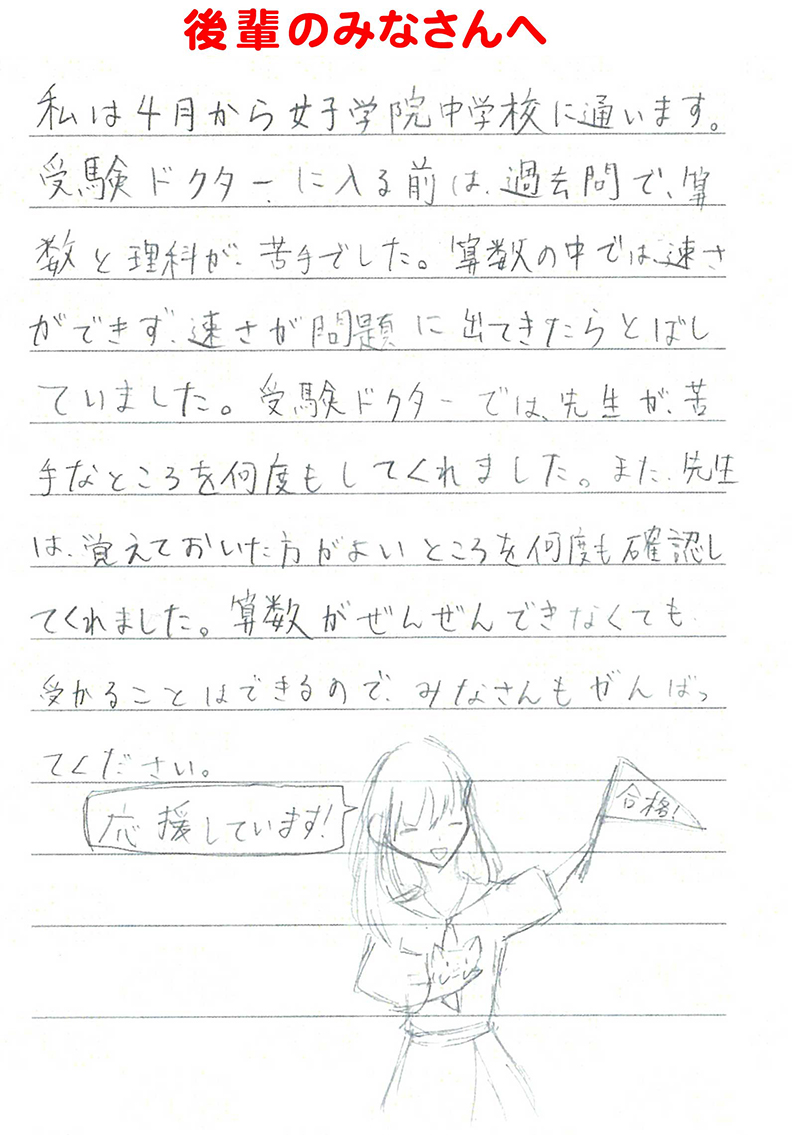 後輩のみなさんへ
私は4月から女子学院中学校に通います。
受験ドクター、に入る前は、過去問で、算
数と理科が、苦手でした。算数の中では、速さ
ができず、速さが問題に出てきたらとばし
ていました。受験ドクターでは、先生が、苦
手なところを何度もしてくれました。また、先生
は、覚えておいた方がよいところを何度も確認し
てくれました。算数がぜんぜんできなくても、
受かることはできるので、みなさんもがんばっ
てください。
応援しています!
合格!